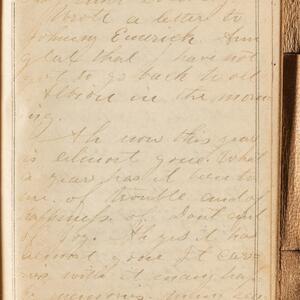 Wrote a letter to
Johnny Emerick. Am
glad that I have not
got to go back to
Albion in the morn
ing.
Ah now this year
is almost gone. What
a year has it been to
me. of trouble and of
happiness of
of joy. Ah yes it has
almost gone It carr
ies with it many hap